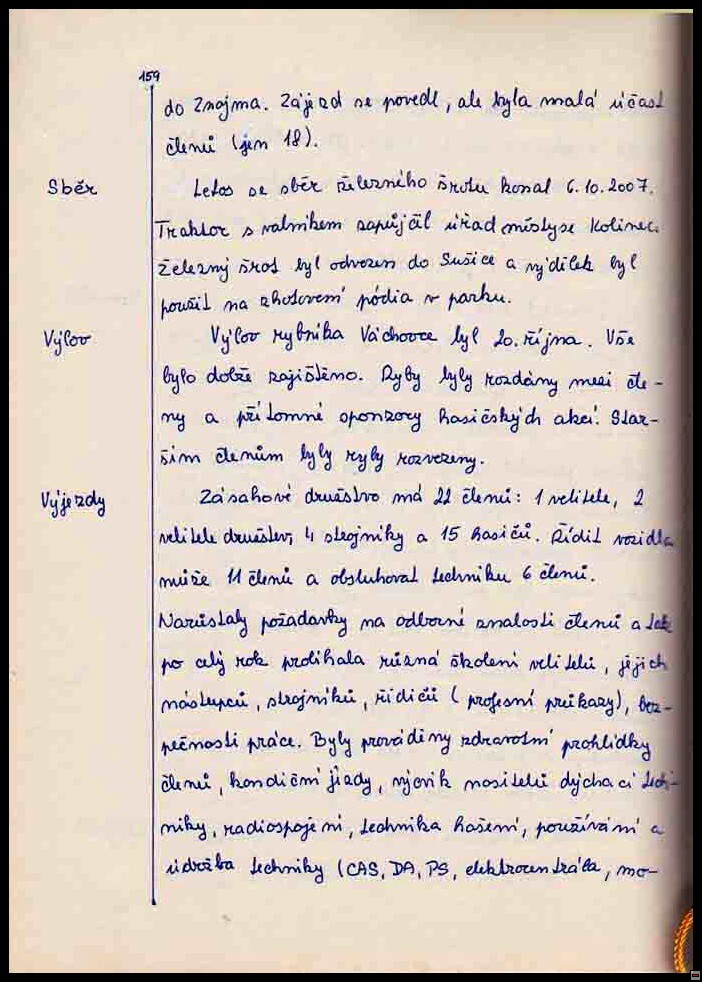 159
do Znojma. Zájezd se povedl, ale byla malá účast
členů (jen 18).
Sběr
Letos se sběr železného šrotu konal 6.10.2007.
Traktor s valníkem zapůjčil úřad městyse Kolinec.
Železný šrot byl odvezen do Sušice a výdělek byl
použit na zhotovení pódia v parku.
Výlov
Výlov rybníka Váchovce byl 20. října. Vše
bylo dobře zajištěno. Ryby byly rozdány mezi čle-
ny a přítomné sponzory hasičských akcí. Star-
ším členům byly ryby rozvezeny.
Výjezdy
Zásahové družstvo má 22 členů: 1 velitele, 2
velitele družstev, 4 strojníky a 15 hasičů. Řídit vozidla
může 11 členů a obsluhovat techniku 6 členů.
Narůstaly požadavky na odborné znalosti členů a tak
po celý rok probíhala různá školení velitelů, jejich
nástupců, strojníků, řidičů (profesní průkazy), bez-
pečnosti práce. Byly prováděny zdravotní prohlídky
členů, kondiční jízdy, výcvik nositelů dýchací tech-
niky, radiospojení, technika hašení, používání a
údržba techniky (CAS, DA, PS, elektrocentrála, mo-